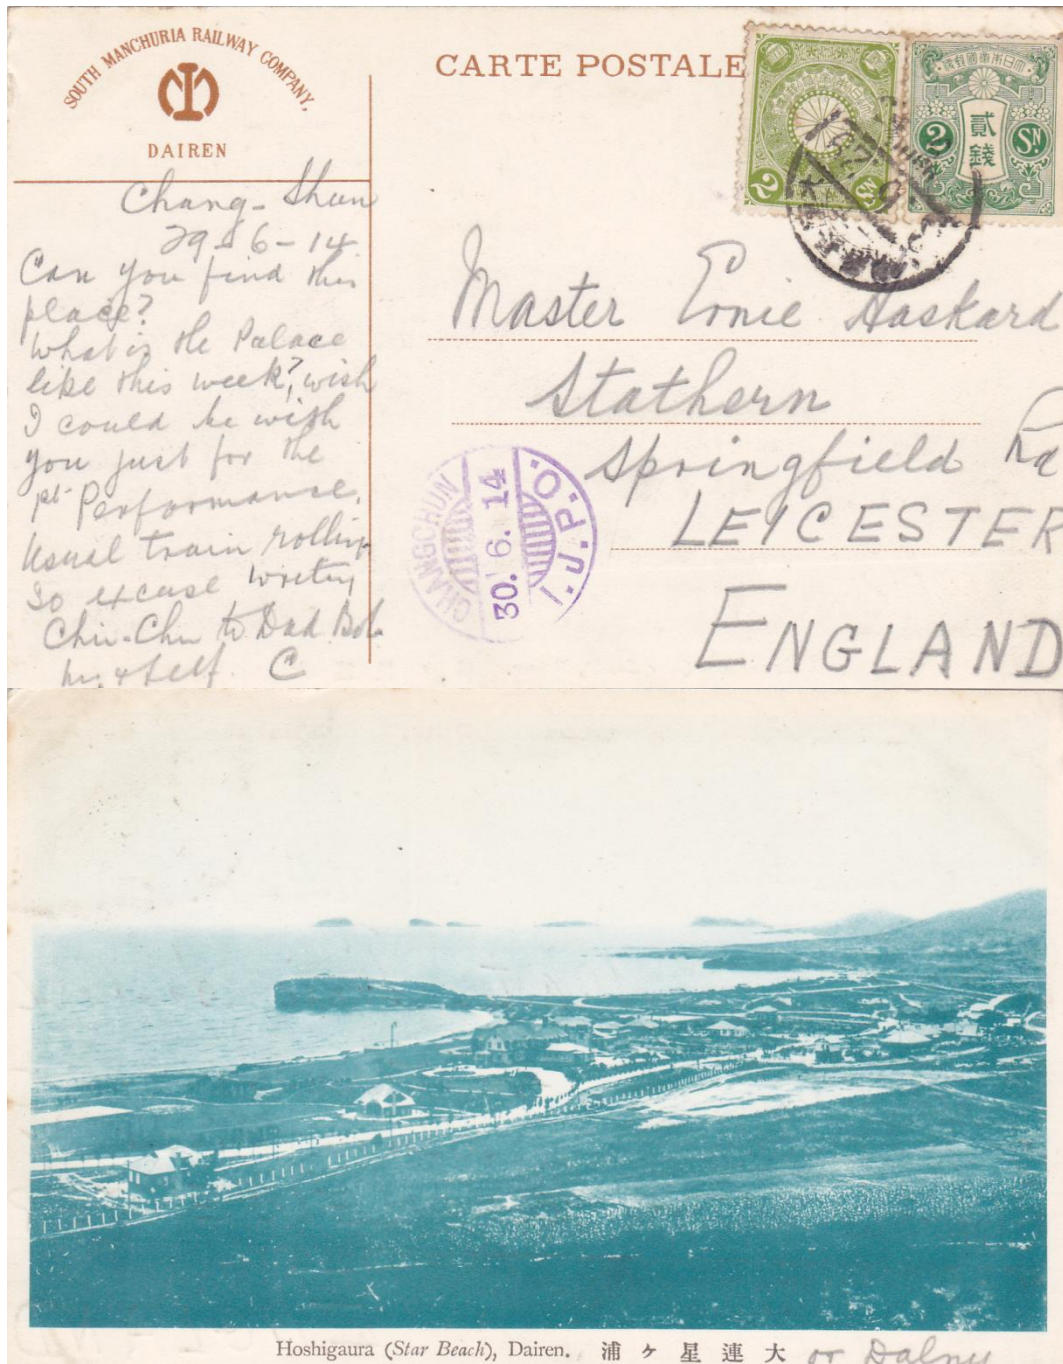 SOUTH MANCHURIA RAILWAY COMPANY,
DAIREN
CARTE POSTALE
2 SN
貳錢
2 SN
Chang-Shun
29-6-14
Can you find this
place?
What is the Palace
like this week?, wish
I could be with
you just for the
1st Performance.
Usual train rolling
So excuse writing
Chin-Chu to Dad Bob
C
Master Ernie Haskard
Stathern
Springfield Rd
LEICESTER
ENGLAND
CHANGCHUN
30. 6. 14
I.J.P.O.
Hoshigaura (Star Beach), Dairen. 浦ヶ星連大
or Dalny